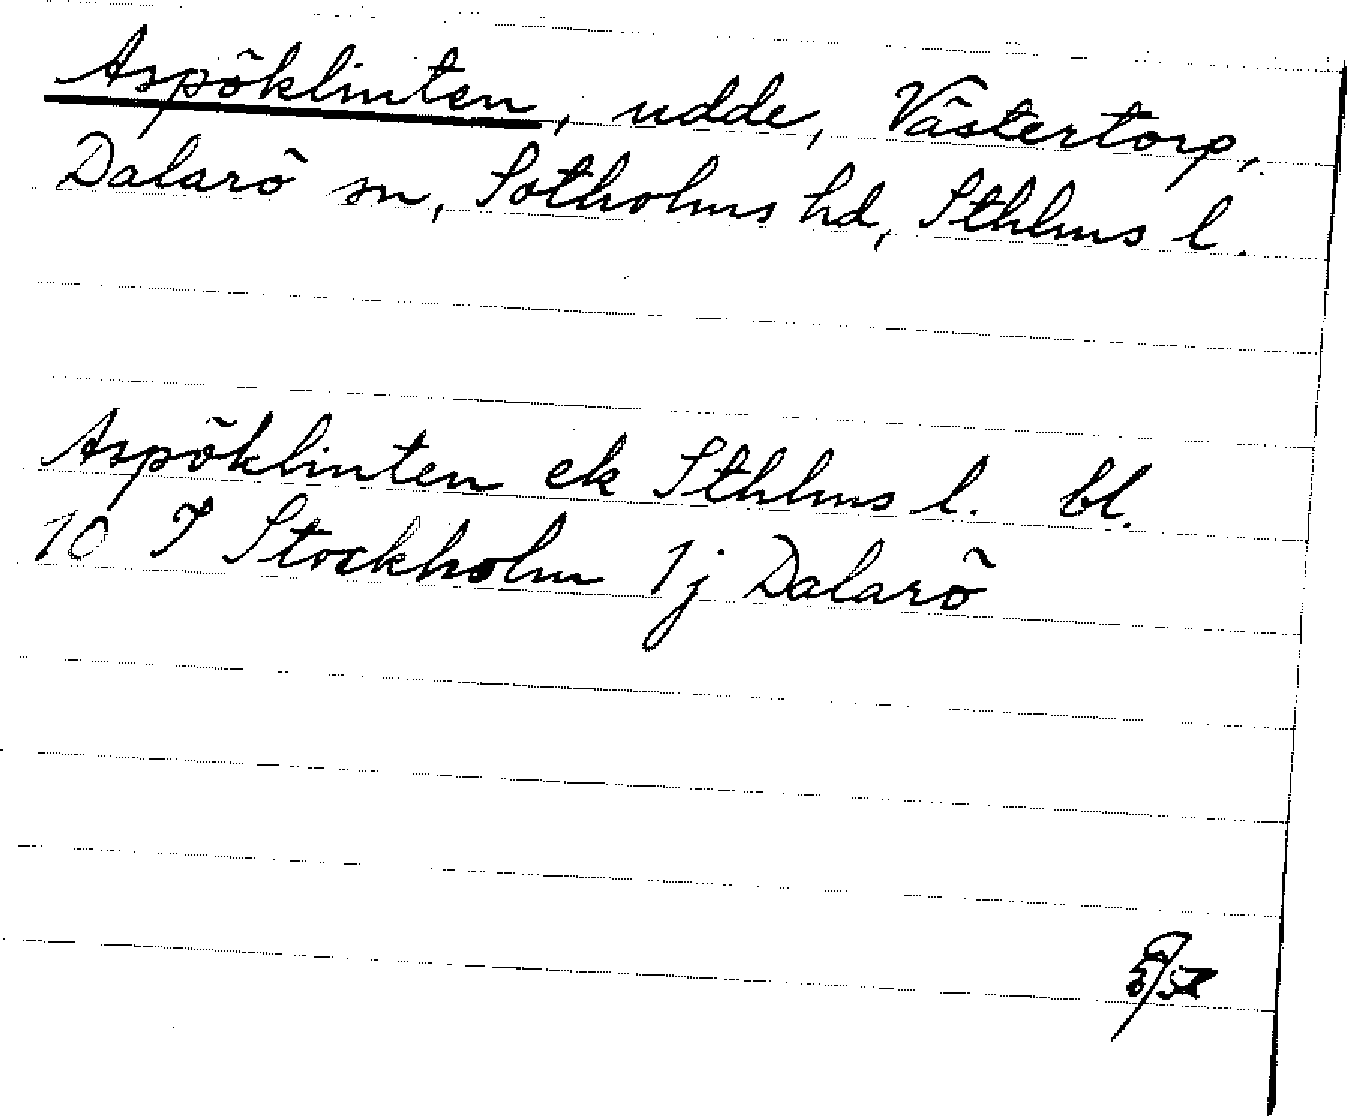 Aspöklinten, udde, Västertorp,
Dalarö sn, Sotholms hd, Sthlms l.
Aspöklinten ek Sthlms l. bl.
10 I Stockholm 1j Dalarö